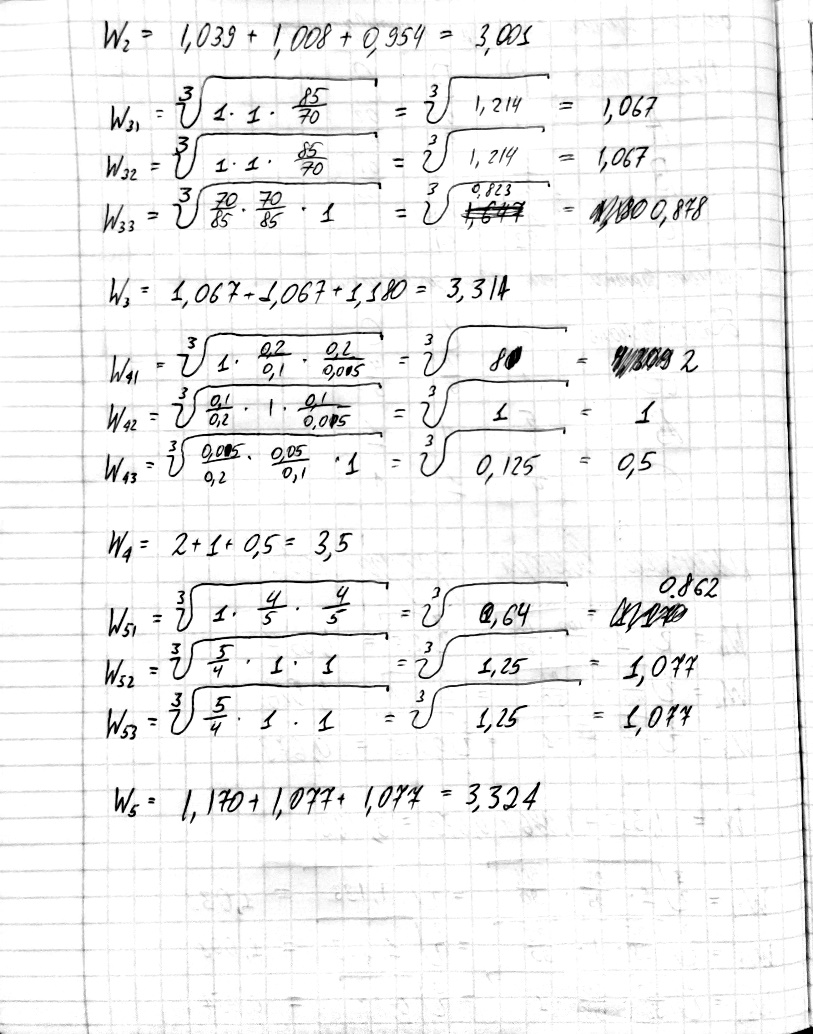 W₂ = 1,039 + 1,008 + 0,954 = 3,001
W₃₁ = ³√(1 · 1 · 85/70) = ³√(1,214) = 1,067
W₃₂ = ³√(1 · 1 · 85/70) = ³√(1,214) = 1,067
W₃₃ = ³√(70/85 · 70/85 · 1) = ³√(0,823) = 0,878
W₃ = 1,067 + 1,067 + 1,180 = 3,314
W₄₁ = ³√(1 · 0,2/0,1 · 0,2/0,05) = ³√(8) = 2
W₄₂ = ³√(0,1/0,2 · 1 · 0,1/0,05) = ³√(1) = 1
W₄₃ = ³√(0,05/0,2 · 0,05/0,1 · 1) = ³√(0,125) = 0,5
W₄ = 2 + 1 + 0,5 = 3,5
W₅₁ = ³√(1 · 4/5 · 4/5) = ³√(0,64) = 0.862
W₅₂ = ³√(5/4 · 1 · 1) = ³√(1,25) = 1,077
W₅₃ = ³√(5/4 · 1 · 1) = ³√(1,25) = 1,077
W₅ = 1,170 + 1,077 + 1,077 = 3,324